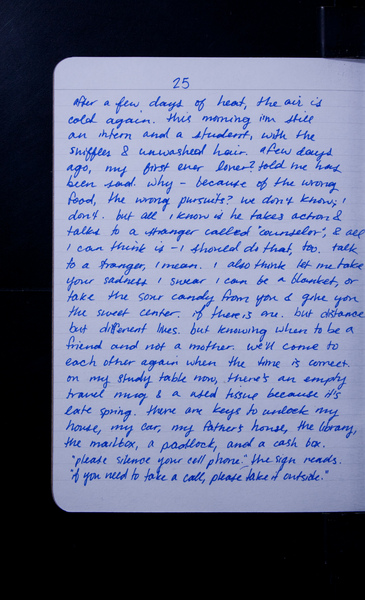 25
after a few days of heat, the air is
cold again. this morning im still
an intern and a student, with the
sniffles & unwashed hair. a few days
ago, my first ever lover? told me he's
been sad. why - because of the wrong
food, the wrong pursuits? we don't know; i
don't. but all i know is he takes action &
talks to a stranger called "counselor", & all
i can think is - i should do that, too. talk
to a stranger, i mean. i also think let me take
your sadness i swear i can be a blanket, or
take the sour candy from you & give you
the sweet center. if there is one. but distance
but different lives. but knowing when to be a
friend and not a mother. we'll come to
each other again when the time is correct.
on my study table now, there's an empty
travel mug & a used tissue because it's
late spring. there are keys to unlock my
house, my car, my father's house, the library,
the mailbox, a padlock, and a cash box.
"please silence your cell phone." the sign reads.
"if you need to take a call, please take it outside."